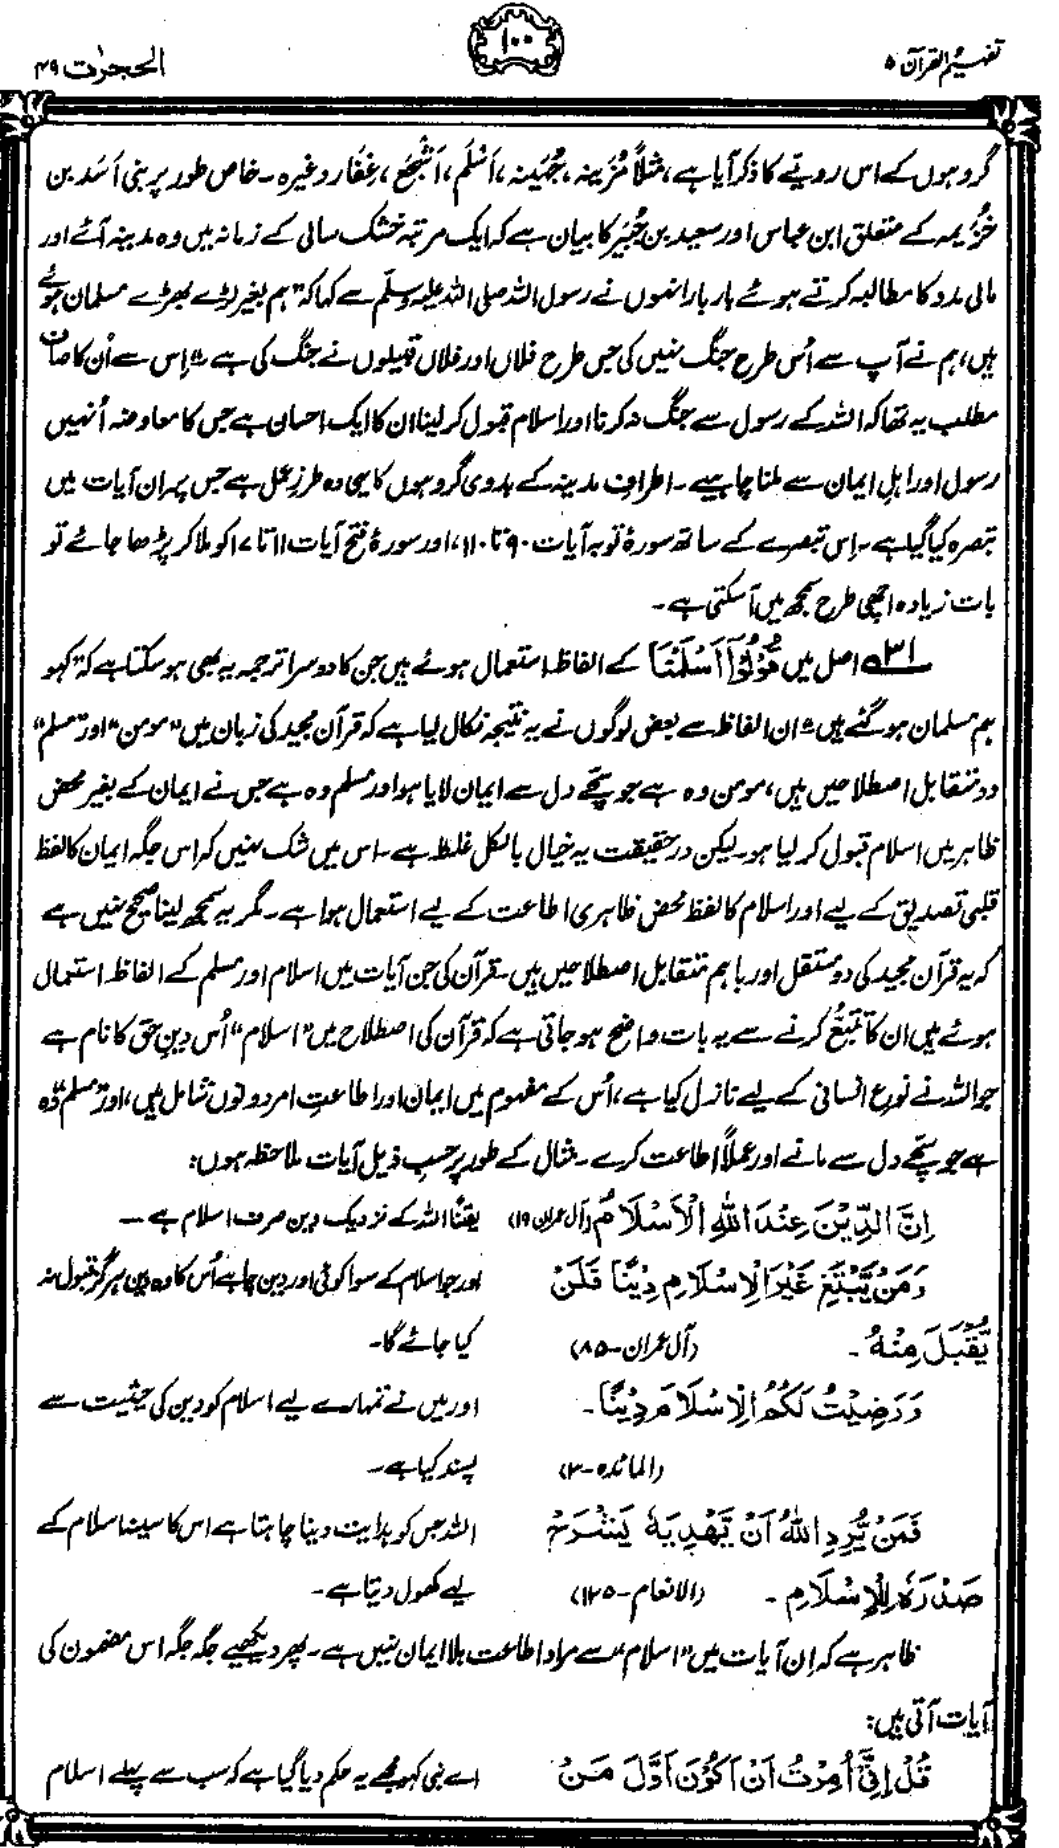 تفہیم القرآن ۵
۱۰۰
الحجرٰت ۴۹
گروہوں کے اس رویّے کا ذکر آیا ہے، مثلاً مُزَینہ، جُہَینہ، اَسْلَم، اَشْجَع، غِفَار وغیرہ۔ خاص طور پر بنی اَسَد بن
خُزَیمہ کے متعلق ابن عباس اور سعید بن جُبَیر کا بیان ہے کہ ایک مرتبہ خشک سالی کے زمانہ میں وہ مدینہ آئے اور
مالی مدد کا مطالبہ کرتے ہوئے بار بار انہوں نے رسول اللہ صلی اللہ علیہ وسلّم سے کہا کہ ”ہم بغیر لڑے بھڑے مسلمان ہوئے
ہیں، ہم نے آپ سے اُس طرح جنگ نہیں کی جس طرح فلاں اور فلاں قبیلوں نے جنگ کی ہے“۔ اِس سے اُن کا صاف
مطلب یہ تھا کہ اللہ کے رسول سے جنگ نہ کرنا اور اسلام قبول کر لینا ان کا ایک احسان ہے جس کا معاوضہ اُنہیں
رسول اور اہلِ ایمان سے ملنا چاہیے۔ اطرافِ مدینہ کے بدوی گروہوں کا یہی وہ طرزِ عمل ہے جس پر ان آیات میں
تبصرہ کیا گیا ہے۔ اِس تبصرے کے ساتھ سورۂ توبہ آیات ۹۰ تا ۱۱۰، اور سورۂ فتح آیات ۱۱ تا ۱۷ کو ملا کر پڑھا جائے تو
بات زیادہ اچھی طرح سمجھ میں آسکتی ہے۔
۳۱ اصل میں قُوْلُوْٓا اَسْلَمْنَا کے الفاظ استعمال ہوئے ہیں جن کا دوسرا ترجمہ یہ بھی ہو سکتا ہے کہ ”کہو
ہم مسلمان ہو گئے ہیں“۔ ان الفاظ سے بعض لوگوں نے یہ نتیجہ نکال لیا ہے کہ قرآن مجید کی زبان میں ”مومن“ اور ”مسلم“
دو متقابل اصطلاحیں ہیں، مومن وہ ہے جو سچّے دل سے ایمان لایا ہو اور مسلم وہ ہے جس نے ایمان کے بغیر محض
ظاہر میں اسلام قبول کر لیا ہو۔ لیکن درحقیقت یہ خیال بالکل غلط ہے۔ اس میں شک نہیں کہ اِس جگہ ایمان کا لفظ
قلبی تصدیق کے لیے اور اسلام کا لفظ محض ظاہری اطاعت کے لیے استعمال ہوا ہے۔ مگر یہ سمجھ لینا صحیح نہیں ہے
کہ یہ قرآن مجید کی دو مستقل اور باہم متقابل اصطلاحیں ہیں۔ قرآن کی جن آیات میں اسلام اور مسلم کے الفاظ استعمال
ہوئے ہیں ان کا تَتَبُّع کرنے سے یہ بات واضح ہو جاتی ہے کہ قرآن کی اصطلاح میں ”اسلام“ اُس دینِ حق کا نام ہے
جو اللہ نے نوعِ انسانی کے لیے نازل کیا ہے، اُس کے مفہوم میں ایمان اور اطاعتِ امر دونوں شامل ہیں، اور ”مسلم“ وہ
ہے جو سچّے دل سے مانے اور عملاً اطاعت کرے۔ مثال کے طور پر حسبِ ذیل آیات ملاحظہ ہوں:
اِنَّ الدِّیْنَ عِنْدَ اللّٰہِ الْاِسْلَامُ (آل عمران ۱۹) یقیناً اللہ کے نزدیک دین صرف اسلام ہے۔
وَمَنْ یَّبْتَغِ غَیْرَ الْاِسْلَامِ دِیْنًا فَلَنْ اور جو اسلام کے سوا کوئی اور دین چاہے اُس کا وہ دین ہرگز قبول نہ
یُّقْبَلَ مِنْہُ۔ (آل عمران۔۸۵) کیا جائے گا۔
وَرَضِیْتُ لَکُمُ الْاِسْلَامَ دِیْنًا۔ اور میں نے تمہارے لیے اسلام کو دین کی حیثیت سے
(المائدہ۔۳) پسند کیا ہے۔
فَمَنْ یُّرِدِ اللّٰہُ اَنْ یَّھْدِیَہٗ یَشْرَحْ اللہ جس کو ہدایت دینا چاہتا ہے اس کا سینہ اسلام کے
صَدْرَہٗ لِلْاِسْلَامِ۔ (الانعام۔۱۲۵) لیے کھول دیتا ہے۔
ظاہر ہے کہ اِن آیات میں ”اسلام“ سے مراد اطاعت بلا ایمان نہیں ہے۔ پھر دیکھیے جگہ جگہ اس مضمون کی
آیات آتی ہیں:
قُلْ اِنِّیْٓ اُمِرْتُ اَنْ اَکُوْنَ اَوَّلَ مَنْ اے نبی کہو مجھے یہ حکم دیا گیا ہے کہ سب سے پہلے اسلام